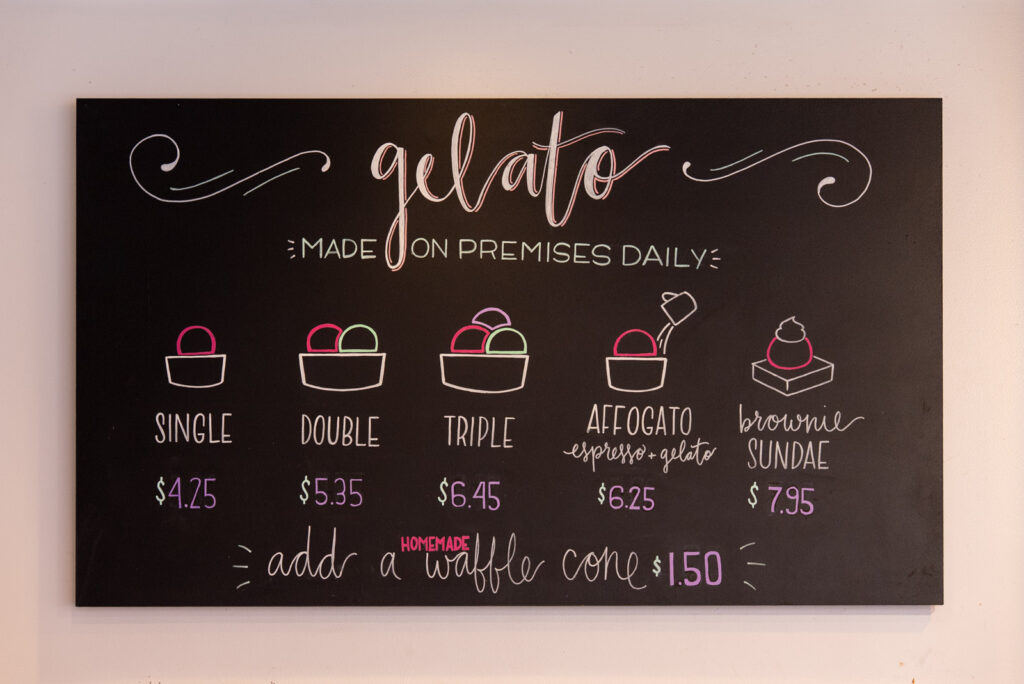 gelato
MADE ON PREMISES DAILY
SINGLE
$4.25
DOUBLE
$5.35
TRIPLE
$6.45
AFFOGATO
espresso + gelato
$6.25
brownie
SUNDAE
$7.95
HOMEMADE
add a waffle cone $1.50